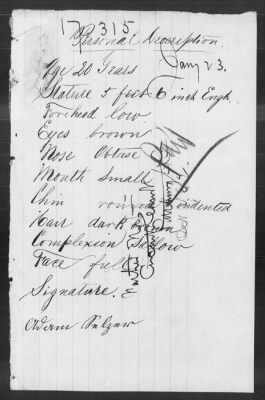 17,315
Personal Description.
Jany 23.
Age 20 Years
Stature 5 feet 6 inch Engh.
Forehead low
Eyes brown
Nose Obtuse
Mouth small
Chin round indented
Hair dark brown
Complexion Sallow
Face full
Signature. &
Adam Selzer